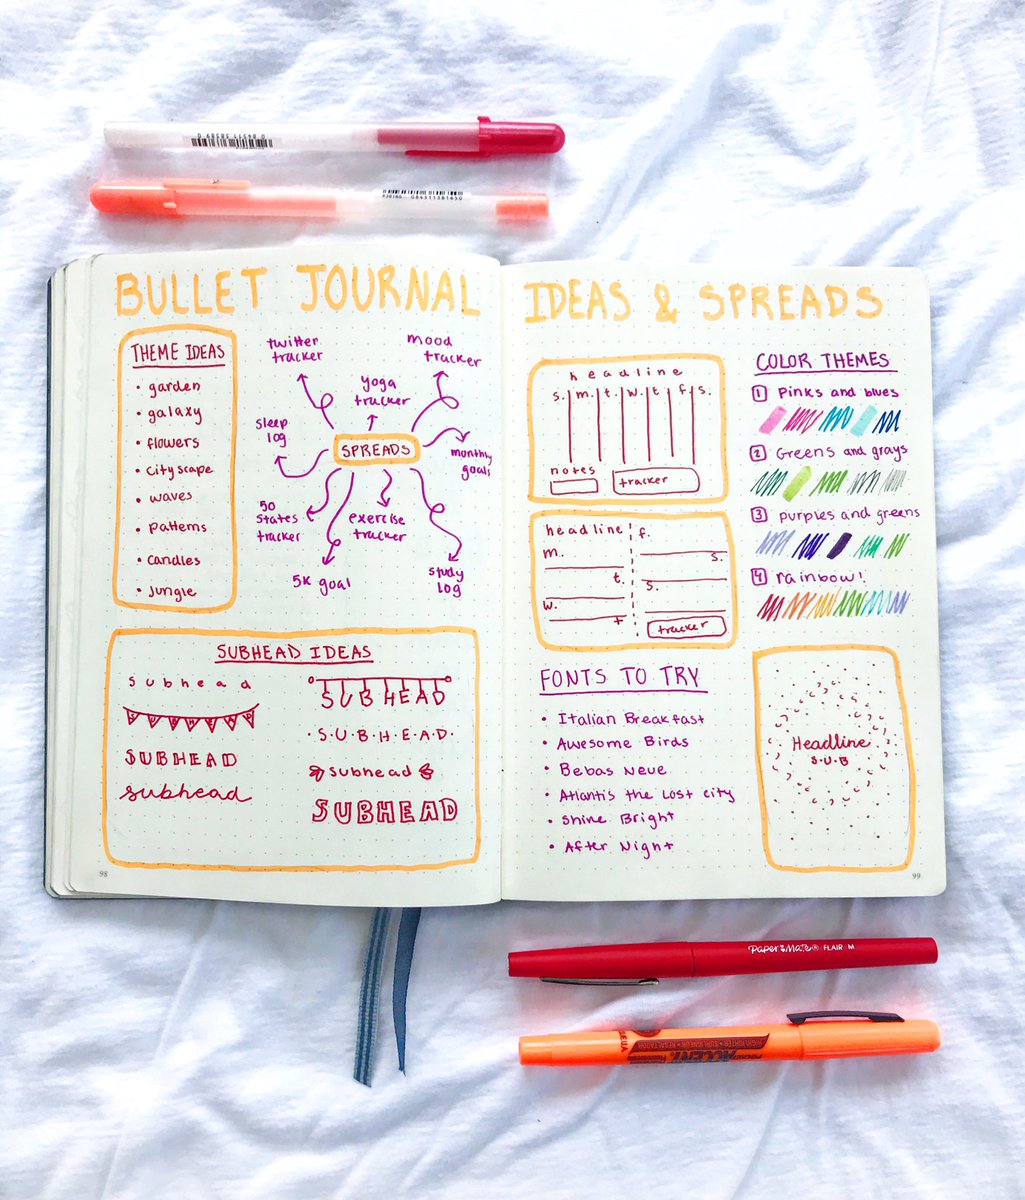 0 84511 38389 0
#38160 084511381650
BULLET JOURNAL
THEME IDEAS
• garden
• galaxy
• flowers
• cityscape
• waves
• patterns
• candles
• jungle
twitter
tracker
mood
tracker
yoga
tracker
sleep
log
SPREADS
monthly
goals
50
states
tracker
exercise
tracker
5K goal
study
log
SUBHEAD IDEAS
subhead
SUBHEAD
SUBHEAD
subhead
SUBHEAD
·S·U·B·H·E·A·D·
subhead
SUBHEAD
98
IDEAS & SPREADS
headline
s. m. t. w. t. f. s.
notes
tracker
headline!
m.
t.
w.
t
f.
s.
s.
tracker
COLOR THEMES
1 Pinks and blues
2 Greens and grays
3 purples and greens
4 rainbow!
FONTS TO TRY
• Italian Breakfast
• Awesome Birds
• Bebas Neue
• Atlantis the Lost city
• Shine Bright
• After Night
Headline
S·U·B
99
Paper Mate® FLAIR M
ACCENT
HIGHLIGHTER • SURLIGNEUR • RESALTADOR